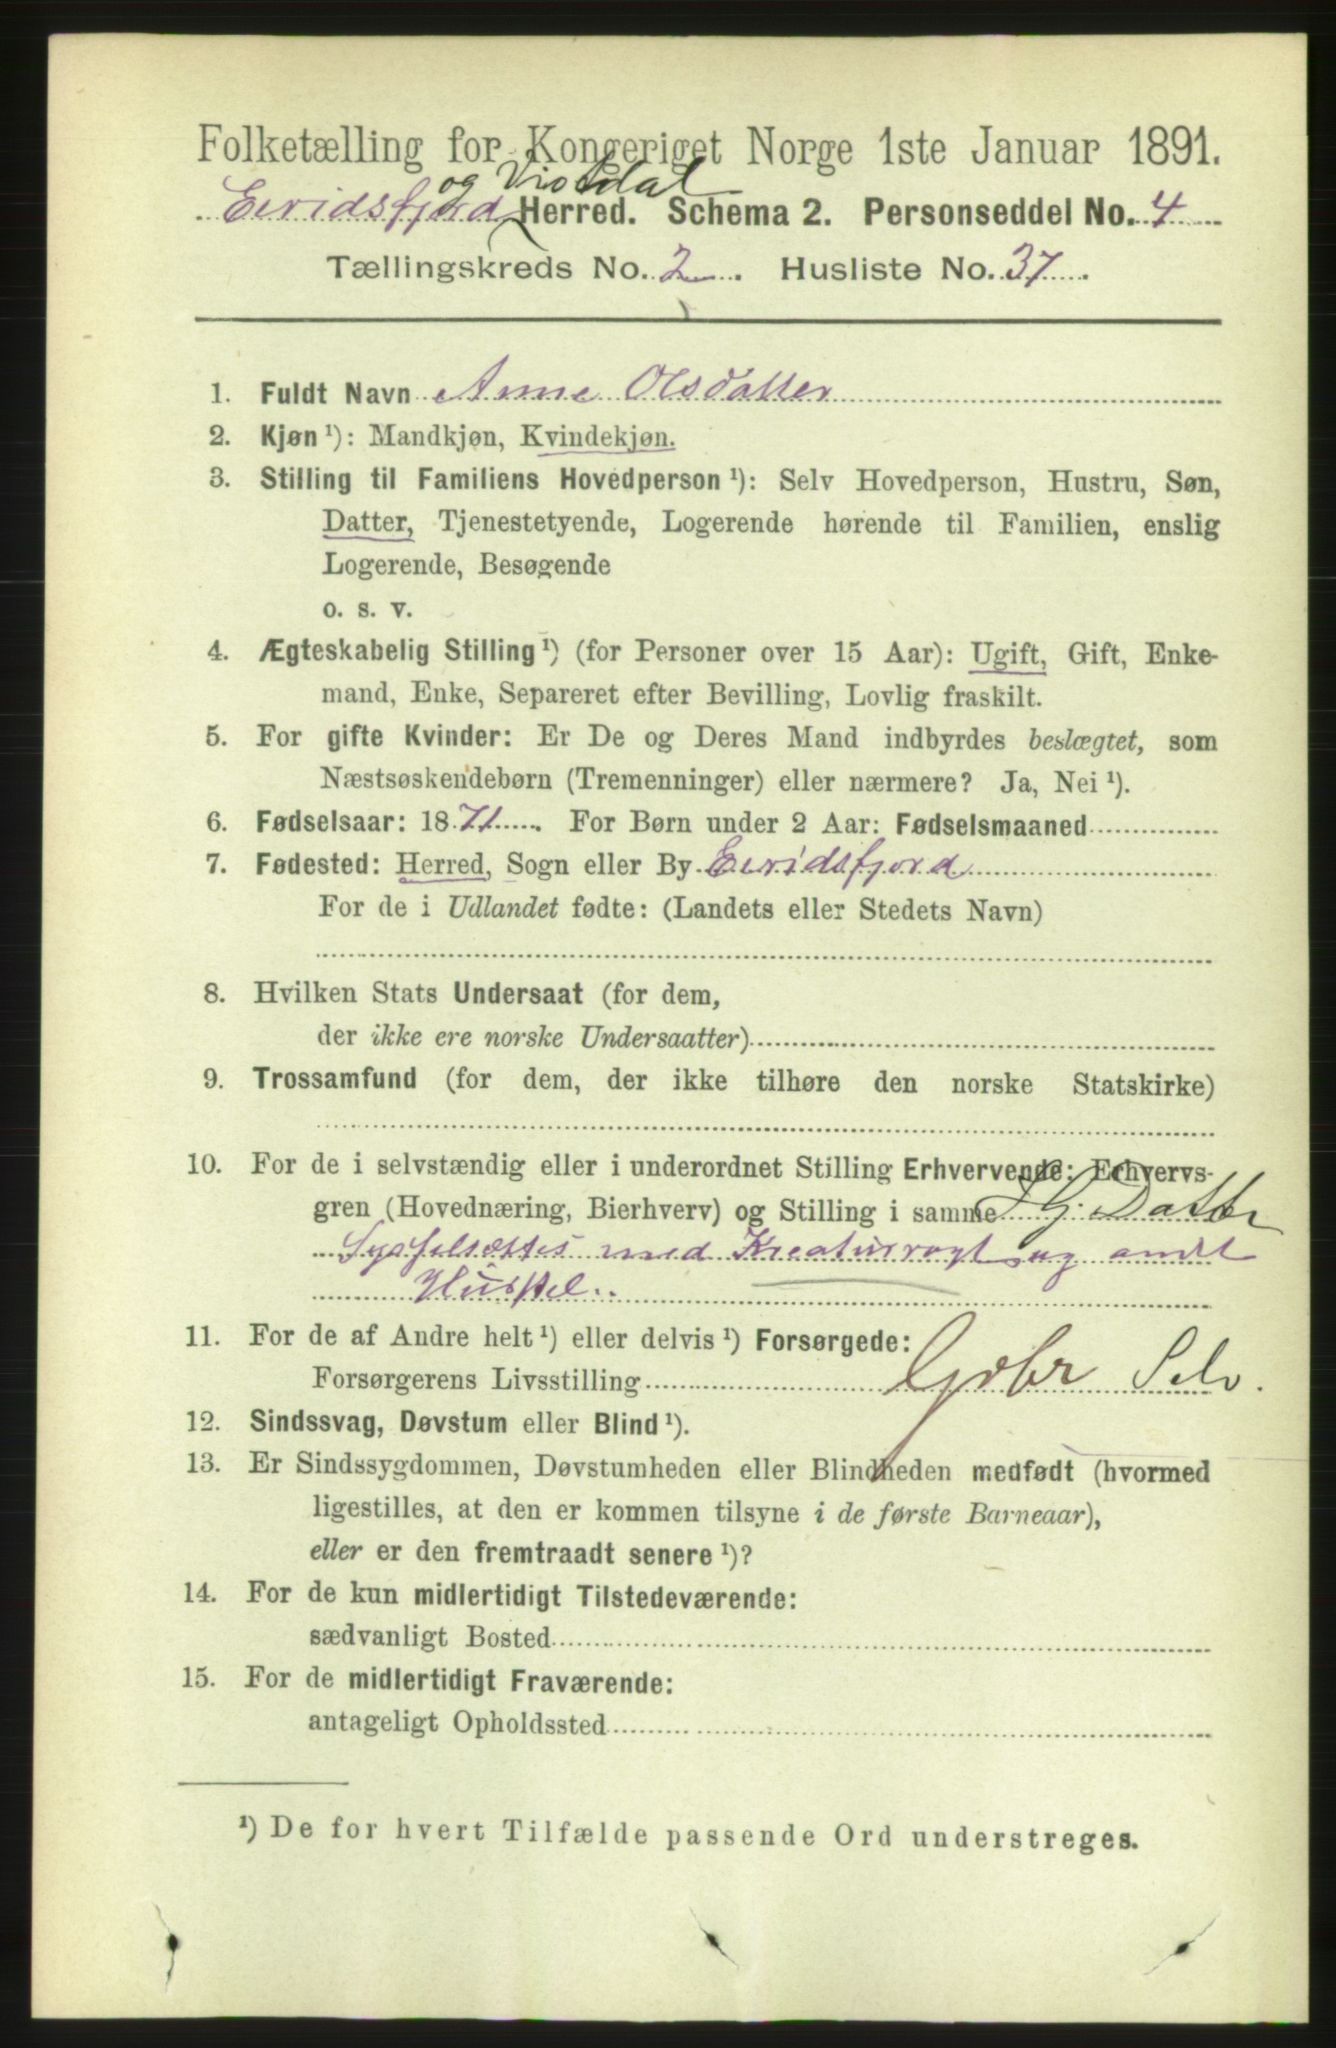 Folketælling for Kongeriget Norge 1ste Januar 1891.
og Vistdal
Eiridsfjord Herred. Schema 2. Personseddel No. 4
Tællingskreds No. 2. Husliste No. 37.
1. Fuldt Navn Anne Olsdatter
2. Kjøn ¹): Mandkjøn, Kvindekjøn.
3. Stilling til Familiens Hovedperson ¹): Selv Hovedperson, Hustru, Søn,
Datter, Tjenestetyende, Logerende hørende til Familien, enslig
Logerende, Besøgende
o. s. v.
4. Ægteskabelig Stilling ¹) (for Personer over 15 Aar): Ugift, Gift, Enke-
mand, Enke, Separeret efter Bevilling, Lovlig fraskilt.
5. For gifte Kvinder: Er De og Deres Mand indbyrdes beslægtet, som
Næstsøskendebørn (Tremenninger) eller nærmere? Ja, Nei ¹).
6. Fødselsaar: 1871. For Børn under 2 Aar: Fødselsmaaned
7. Fødested: Herred, Sogn eller By Eiridsfjord
For de i Udlandet fødte: (Landets eller Stedets Navn)
8. Hvilken Stats Undersaat (for dem,
der ikke ere norske Undersaatter)
9. Trossamfund (for dem, der ikke tilhøre den norske Statskirke)
10. For de i selvstændig eller i underordnet Stilling Erhvervende: Erhvervs-
gren (Hovednæring, Bierhverv) og Stilling i samme Datter
Sysselsættes med Kreaturrogt og andt
Husstel.
11. For de af Andre helt ¹) eller delvis ¹) Forsørgede:
Forsørgerens Livsstilling Gdbr Selv.
12. Sindssvag, Døvstum eller Blind ¹).
13. Er Sindssygdommen, Døvstumheden eller Blindheden medfødt (hvormed
ligestilles, at den er kommen tilsyne i de første Barneaar),
eller er den fremtraadt senere ¹)?
14. For de kun midlertidigt Tilstedeværende:
sædvanligt Bosted
15. For de midlertidigt Fraværende:
antageligt Opholdssted
¹) De for hvert Tilfælde passende Ord understreges.